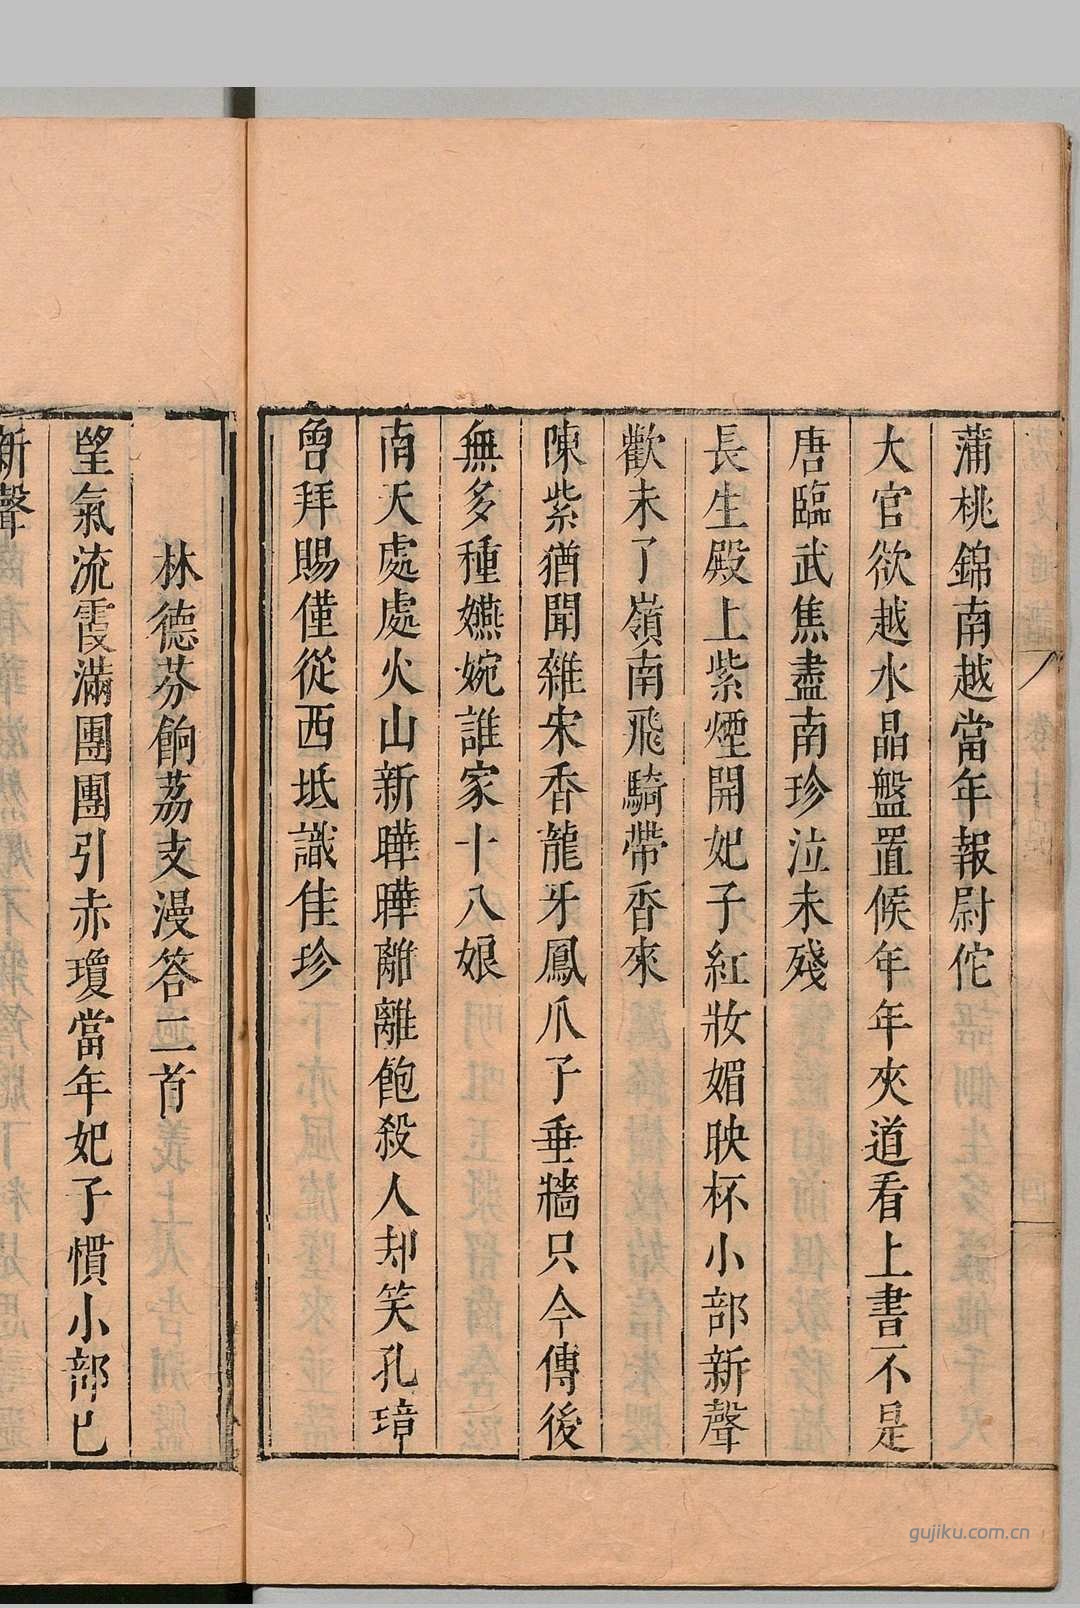 蒲桃錦南越當年報尉佗
大官欲越水晶盤置候年年夾道看上書不是
唐臨武焦盡南珍泣未殘
長生殿上紫煙開妃子紅妝媚映杯小部新聲
歡未了嶺南飛騎帶香來
陳紫猶聞雜宋香龍牙鳳爪子垂牆只今傳後
無多種嬿婉誰家十八娘
南天處處火山新曄曄離離飽殺人却笑孔璋
曾拜賜僅從西坻識佳珍
林德芬餉荔支漫答二首
望氣流霞滿團團引赤瓊當年妃子慣小部已
新聲
gujiku.com.cn